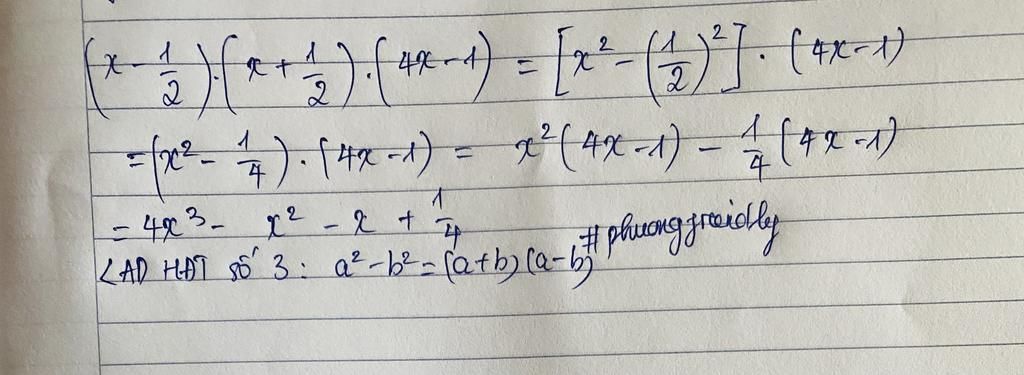 (x - 1/2).(x + 1/2).(4x - 1) = [x² - (1/2)²].(4x - 1)
= (x² - 1/4).(4x - 1) = x²(4x - 1) - 1/4(4x - 1)
= 4x³ - x² - x + 1/4
<AD HĐT số 3: a² - b² = (a+b)(a-b)